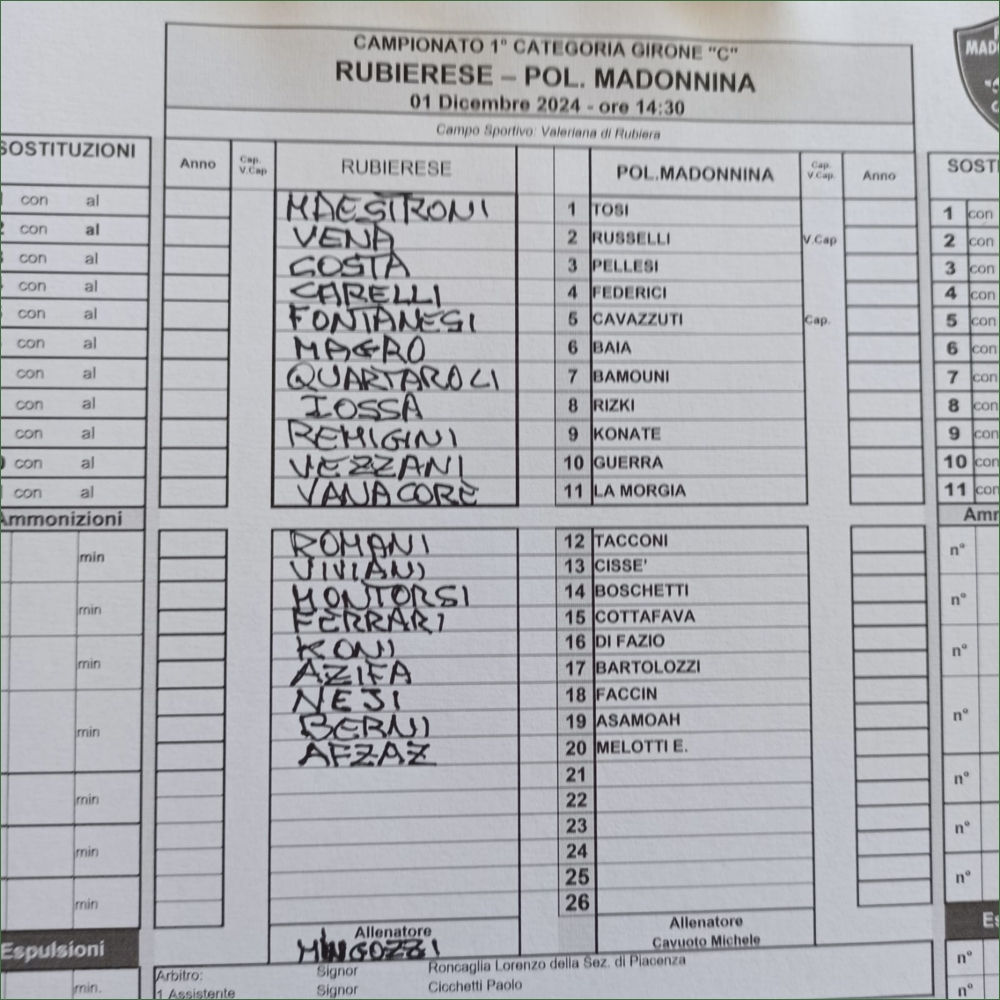 CAMPIONATO 1° CATEGORIA GIRONE "C"
RUBIERESE – POL. MADONNINA
01 Dicembre 2024 - ore 14:30
Campo Sportivo: Valeriana di Rubiera
SOSTITUZIONI Anno Cap. V.Cap RUBIERESE POL.MADONNINA Cap. V.Cap. Anno
con al MAESTRONI 1 TOSI 1 con
con al VENA 2 RUSSELLI V.Cap 2 con
con al COSTA 3 PELLESI 3 con
con al CARELLI 4 FEDERICI 4 con
con al FONTANESI 5 CAVAZZUTI Cap. 5 con
con al MAGRO 6 BAIA 6 con
con al QUARTAROLI 7 BAMOUNI 7 con
con al IOSSA 8 RIZKI 8 con
con al REMIGINI 9 KONATE 9 con
con al VEZZANI 10 GUERRA 10 con
con al VANACORE 11 LA MORGIA 11 con
Ammonizioni
ROMANI 12 TACCONI
min VIVIANI 13 CISSE' n°
MONTORSI 14 BOSCHETTI
min FERRARI 15 COTTAFAVA n°
KONI 16 DI FAZIO
min AZIFA 17 BARTOLOZZI n°
NEJI 18 FACCIN
min BERNI 19 ASAMOAH n°
AFZAZ 20 MELOTTI E.
21
min 22 n°
23
min 24 n°
25
min 26 n°
Allenatore Allenatore
Espulsioni MINGOZZI Cavuoto Michele
Arbitro: Signor Roncaglia Lorenzo della Sez. di Piacenza n°
min. 1 Assistente Signor Cicchetti Paolo n°